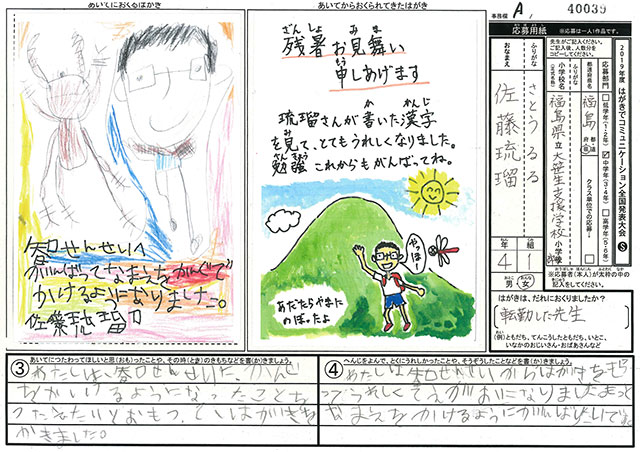 あいてにおくるはがき
あいてからおくられてきたはがき
A
40039
※応募は一人1作品です。
応募用紙
ざんしょ みま
残暑お見舞い
もう
申しあげます
か かんじ
琉瑠さんが書いた漢字
み
を見て、とてもうれしくなりました。
べんきょう
勉強 これからもがんばってね。
やっほー
あだたらやまに
のぼったよ
せんせいへ
がんばってなまえをかんじで
かけるようになりました。
佐藤琉瑠
2019年度 はがきでコミュニケーション全国発表大会 S
応募部門
低学年(1・2年)
中学年(3・4年)
高学年(5・6年)
クラス単位での応募
都道府県名
福島
小学校名
福島県立大笹生支援学校
小学校
ふりがな
さとう るる
おなまえ
佐藤琉瑠
4 年 1 組
男 女
はがきは、だれにおくりましたか?
転勤した先生
(例)ともだち、てんこうしたともだち、いとこ、
いなかのおじいさん・おばあさんなど
③ あいてにつたわってほしいと思(おも)ったことや、その時(とき)のきもちなどを書(か)きましょう。
かけるようになったことを
つたえたいとおもっ
かきました。
④ へんじをよんで、とくにうれしかったことや、そうぞうしたことなどを書(か)きましょう。